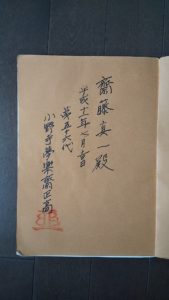 齋藤真一殿
平成十一年七月吉日
第五十六代
小野寺夢楽齋正高